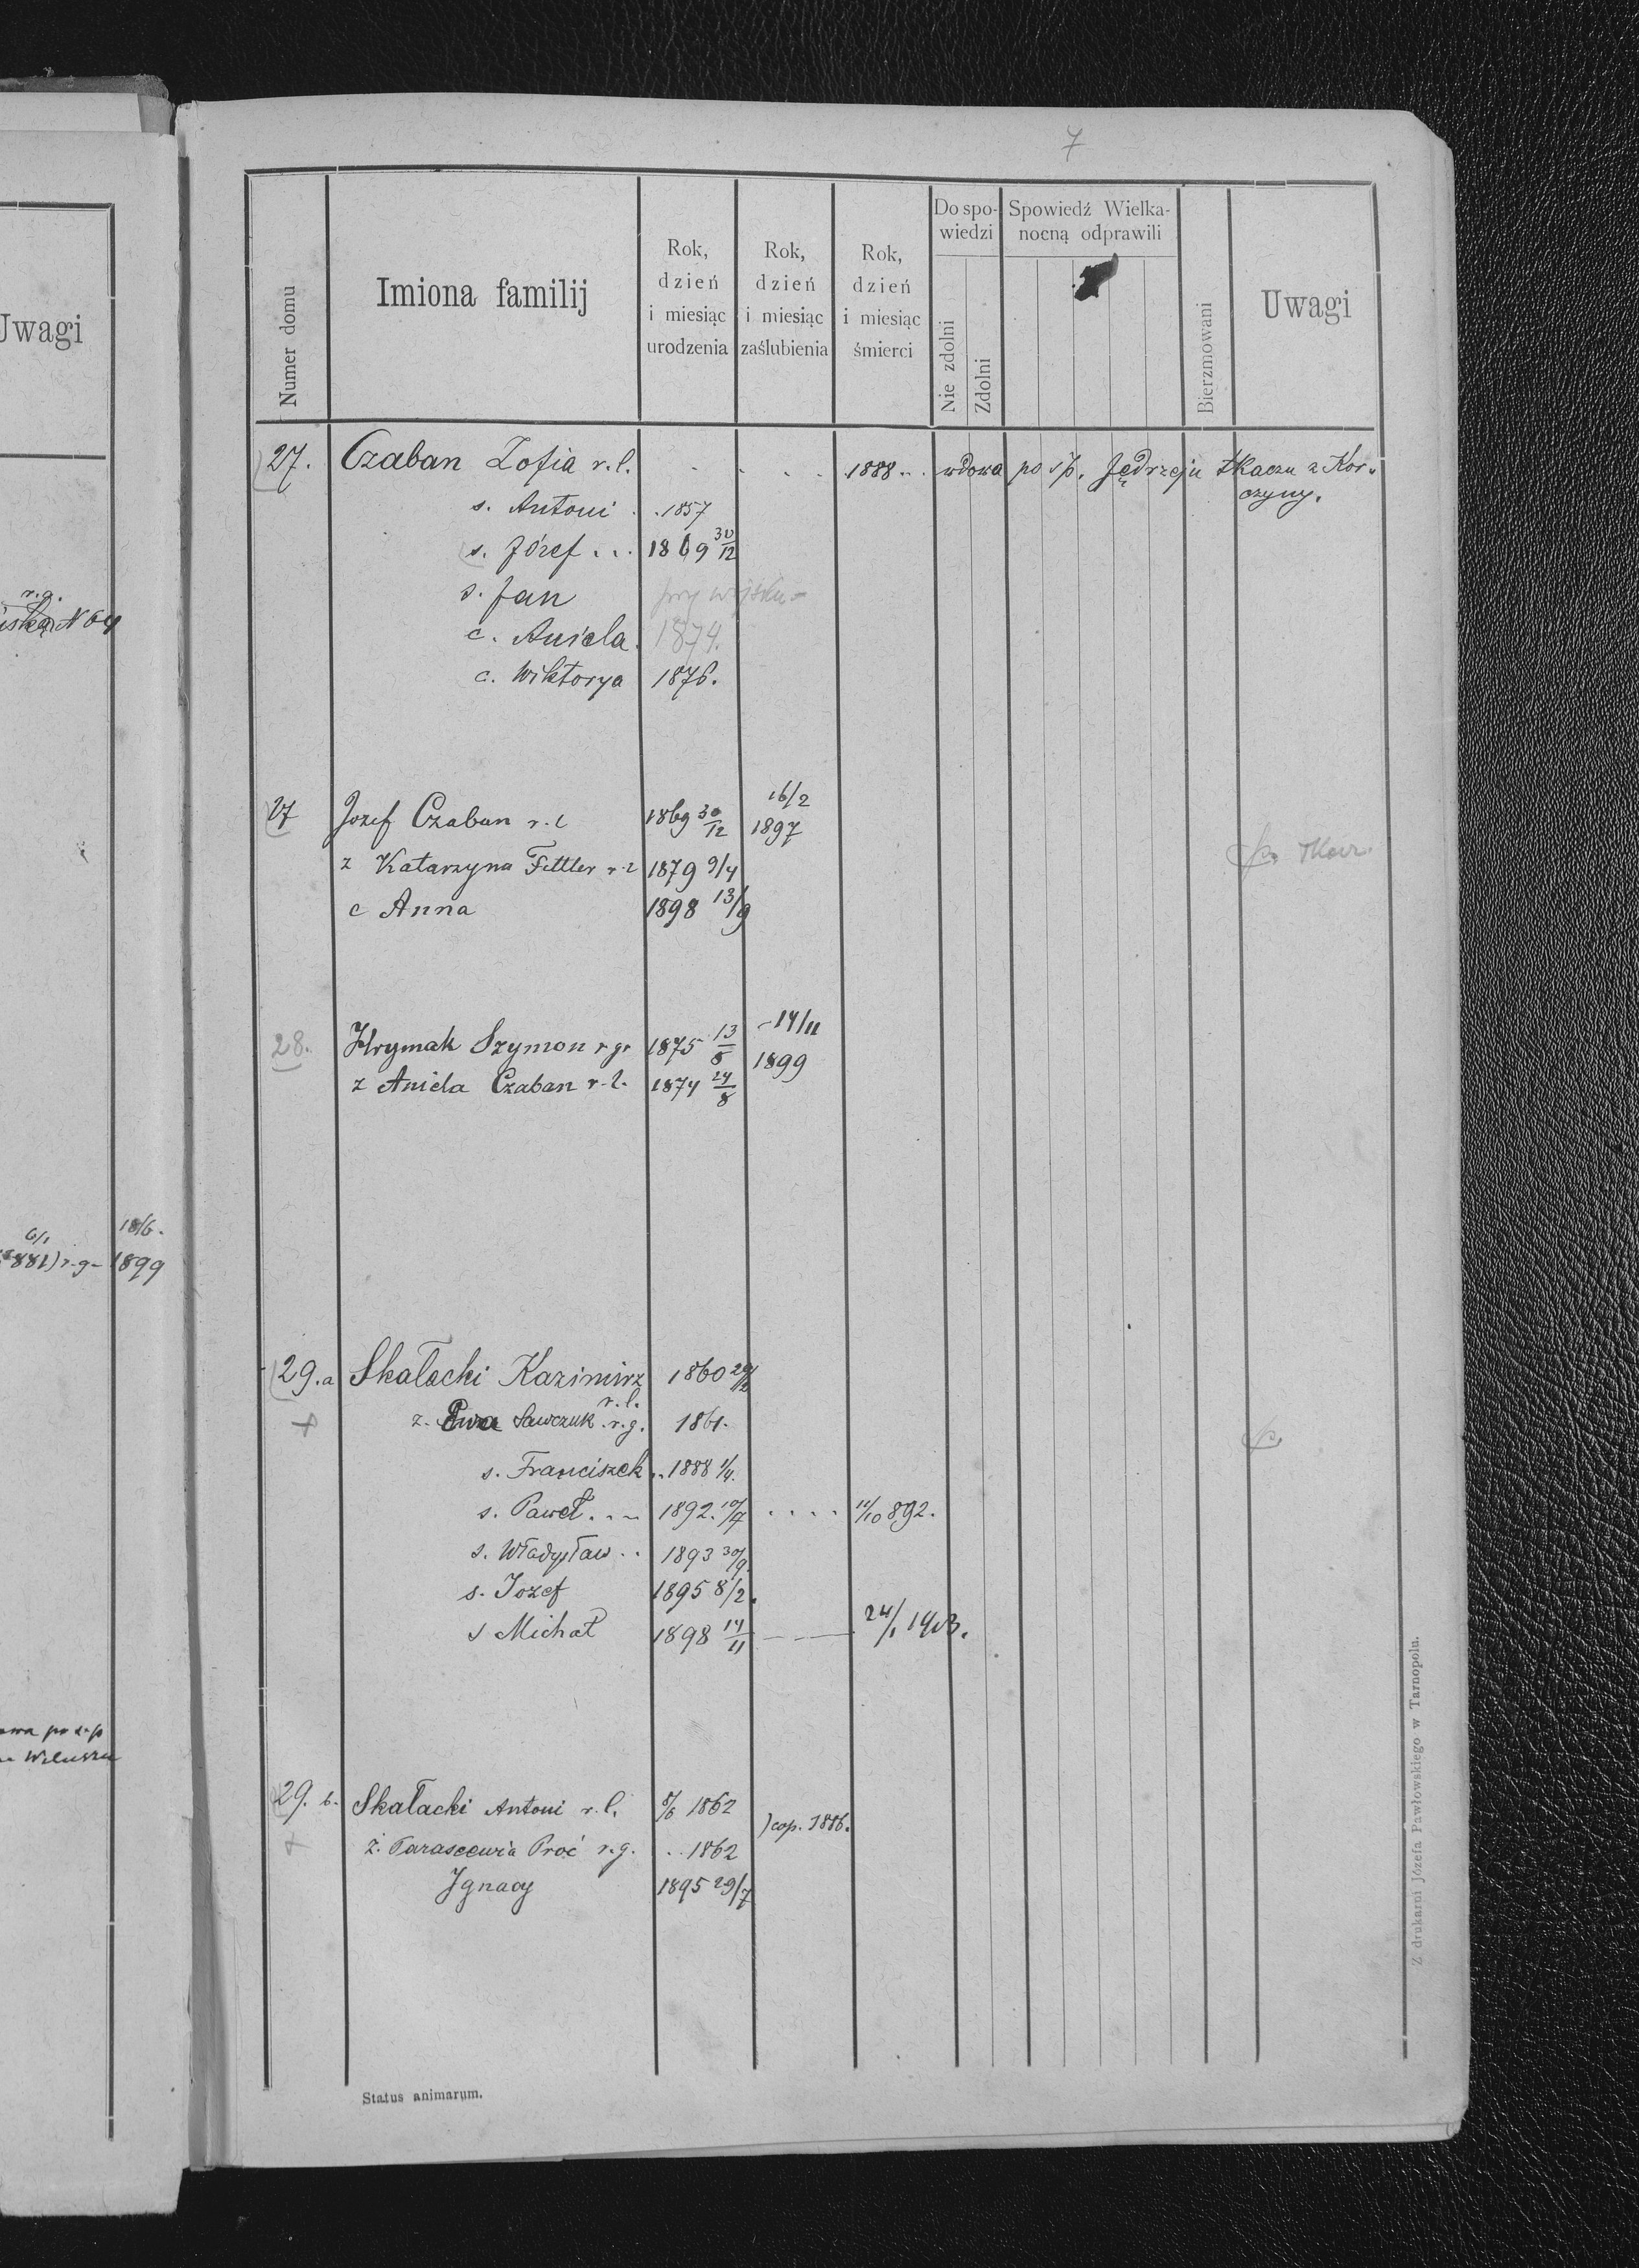 7
Numer domu
Imiona familij
Rok,
dzień
i miesiąc
urodzenia
Rok,
dzień
i miesiąc
zaślubienia
Rok,
dzień
i miesiąc
śmierci
Do spo-
wiedzi
Nie zdolni
Zdolni
Spowiedź Wielka-
nocną odprawili
Bierzmowani
Uwagi
27. Czaban Zofia r.l. . . . . 1888 . . wdowa po śp. Jędrzeju tkaczu z Kor-
czyny.
s. Antoni . . 1857
s. Józef . . . 1869 30/12
s. Jan przy wojsku -
c. Aniela. 1874.
c. Wiktorya 1876.
16/2
27 Jozef Czaban r.l 1869 30/12 1897
z Katarzyna Fettler r.l 1879 9/4
c Anna 1898 13/9
- 14/11
28. Hrymak Szymon r.gr 1875 13/8 1899
z Aniela Czaban r.l. 1874 24/8
29.a Skałacki Kazimirz 1860 29/12
r.l.
+ z. Ewa Sawczuk r.g. 1861.
s. Franciszek . . 1888 1/4.
s. Paweł . . ~ 1892. 10/7 . . . . 11/10 892.
s. Władysław . . 1893 30/9.
s. Jozef 1895 8/2.
s Michał 1898 14/11 24/1 1903.
29. b. Skałacki Antoni r.l. 8/6 1862
) cop. 1886.
+ ż. Parascewia Proć r.g. . . 1862
Ignacy 1895 29/7
Status animarum.
Z drukarni Józefa Pawłowskiego w Tarnopolu.
Uwagi
r.g.
N 64
6/1
18/6.
1881) r-g- 1899
po ś.p